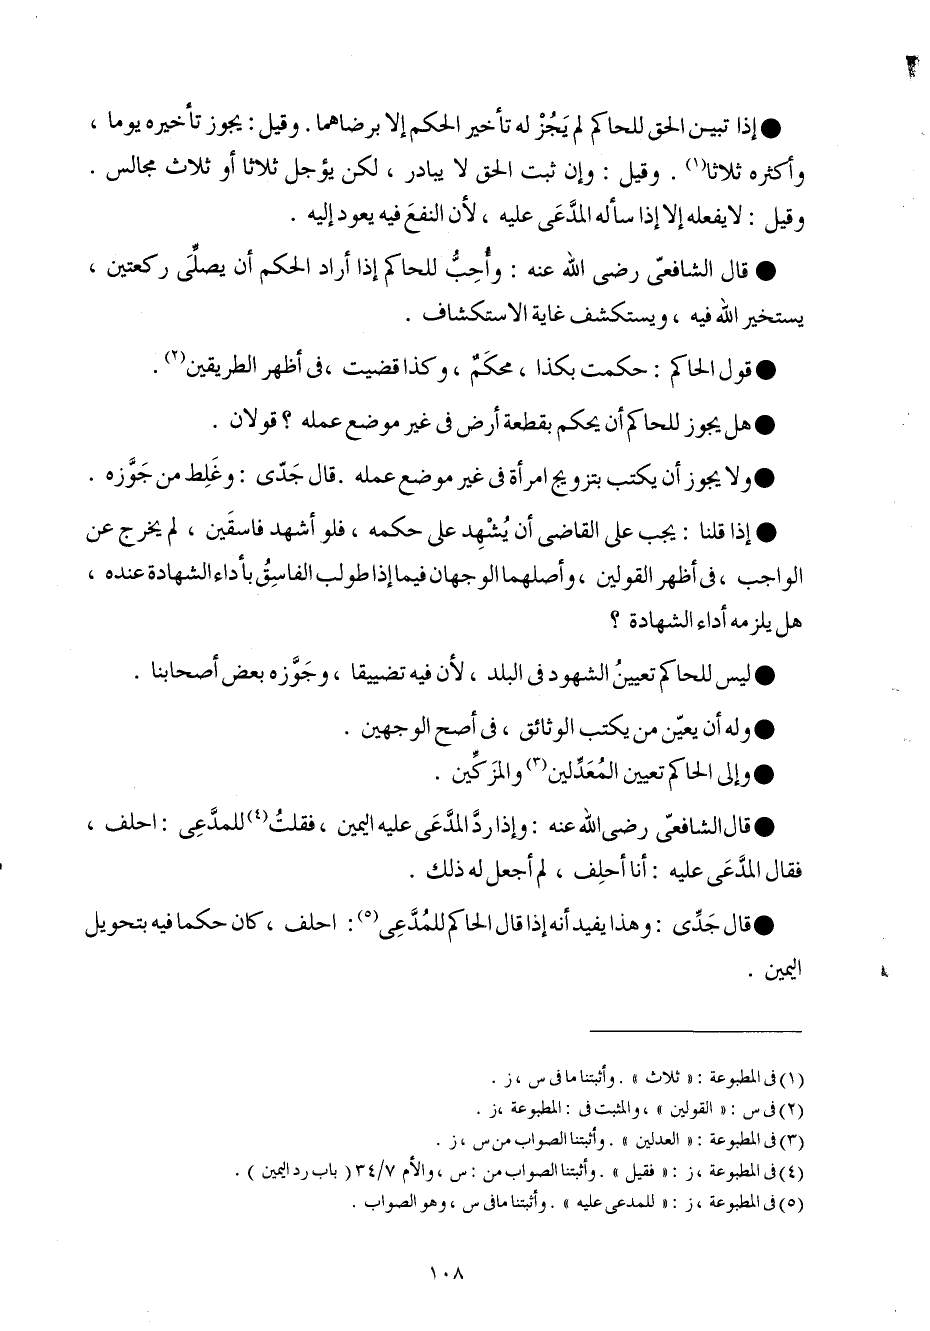 ● إذا تبين الحق للحاكم لم يَجُزْ له تأخير الحكم إلا برضاهما. وقيل: يجوز تأخيره يوما ،
وأكثره ثلاثا(١) . وقيل : وإن ثبت الحق لا يبادر ، لكن يؤجل ثلاثا أو ثلاث مجالس .
وقيل : لا يفعله إلا إذا سأله المدَّعَى عليه ، لأن النفعَ فيه يعود إليه .
● قال الشافعىّ رضى الله عنه : وأُحِبُّ للحاكم إذا أراد الحكم أن يصلِّىَ ركعتين ،
يستخير الله فيه ، ويستكشف غاية الاستكشاف .
● قول الحاكم : حكمت بكذا ، محكَمٌ ، وكذا قضيت ، فى أظهر الطريقين(٢) .
● هل يجوز للحاكم أن يحكم بقطعة أرض فى غير موضع عمله ؟ قولان .
● ولا يجوز أن يكتب بتزويج امرأة فى غير موضع عمله . قال جَدّى : وغَلِط من جَوَّزه .
● إذا قلنا : يجب على القاضى أن يُشْهِد على حكمه ، فلو أشهد فاسقَين ، لم يخرج عن
الواجب ، فى أظهر القولين ، وأصلهما الوجهان فيما إذا طولب الفاسِقُ بأداء الشهادة عنده ،
هل يلزمه أداء الشهادة ؟
● ليس للحاكم تعيينُ الشهود فى البلد ، لأن فيه تضييقا ، وجَوَّزه بعض أصحابنا .
● وله أن يعيّن من يكتب الوثائق ، فى أصح الوجهين .
● وإلى الحاكم تعيين المُعَدِّلين(٣) والمزَكِّين .
● قال الشافعىّ رضى الله عنه : وإذا ردَّ المدَّعَى عليه اليمين ، فقلتُ(٤) للمدَّعِى : احلف ،
فقال المدَّعَى عليه : أنا أحلِف ، لم أجعل له ذلك .
● قال جَدِّى : وهذا يفيد أنه إذا قال الحاكم للمُدَّعِى(٥): احلف ، كان حكما فيه بتحويل
اليمين .
(١) فى المطبوعة : « ثلاث » . وأثبتنا ما فى س ، ز .
(٢) فى س : « القولين » ، والمثبت فى : المطبوعة ، ز .
(٣) فى المطبوعة : « العدلين » . وأثبتنا الصواب من س ، ز .
(٤) فى المطبوعة ، ز : « فقيل » . وأثبتنا الصواب من : س ، والأم ٣٤/٧ ( باب رد اليمين ) .
(٥) فى المطبوعة ، ز : « للمدعى عليه » . وأثبتنا ما فى س ، وهو الصواب .
١٠٨